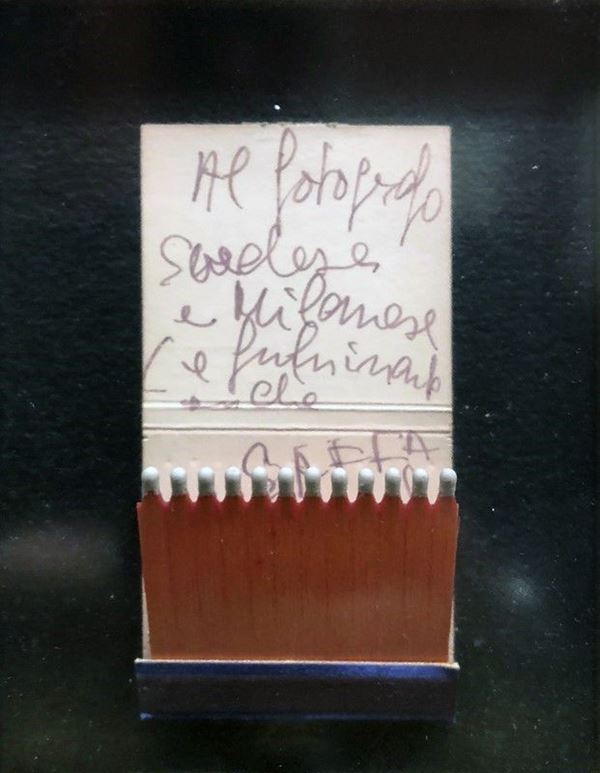 Al fotografo
svedese
e Milanese
(e fulminante
che